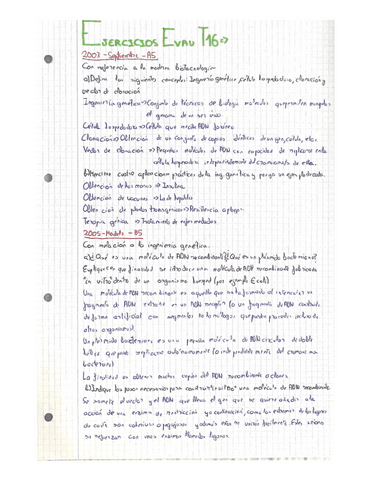 EJERCICIOS EVAU T16->
2003 - Septiembre - A5
Con referencia a la moderna biotecnología:
a) Defina los siguientes conceptos: Ingeniería genética, célula hospedadora, clonación y
vector de clonación
Ingeniería genética -> Conjunto de técnicas de biología molecular que permiten manipular
el genoma de un ser vivo
Célula hospedadora -> Célula que recibe ADN foráneo
Clonación -> Obtención de un conjunto de copias idénticas de un gen, célula, etc.
Vector de clonación -> Pequeña molécula de ADN con capacidad de replicarse en la
célula hospedadora independientemente del cromosoma de ella.
b) Mencione cuatro aplicaciones prácticas de la ing. genética y ponga un ejemplo de cada.
Obtención de hormonas -> Insulina
Obtención de vacunas -> La de hepatitis
Obtención de plantas transgénicas -> Resistencia a plagas
Terapia génica -> Tratamiento de enfermedades
2005 - Modelo - B5
Con relación a la ingeniería genética:
a) ¿Qué es una molécula de ADN recombinante? ¿Qué es un plásmido bacteriano?
Explique con qué finalidad se introduce una molécula de ADN recombinante fabricada
"in vitro" dentro de un organismo (por ejemplo E. coli)
Una molécula de ADN recombinante es aquella que
fragmento de ADN extraño en un ADN receptor (o un fragmento de ADN
de forma artificial con segmentos no homólogos que pueden proceder incluso de
otros organismos).
Un plásmido bacteriano es una pequeña molécula de ADN circular de doble
hélice que puede replicarse autónomamente (o independientemente del cromosoma
bacteriano)
La finalidad es obtener muchas copias del ADN recombinante o clones.
b) Indique los pasos necesarios para construir "in vitro" una molécula de ADN recombinante.
Se somete el vector y el ADN que lleva el gen que se quiere a la
acción de una enzima de restricción y a continuación, como los extremos
de corte son cohesivos o pegajosos y
se refuerzan con una enzima llamada ligasa.